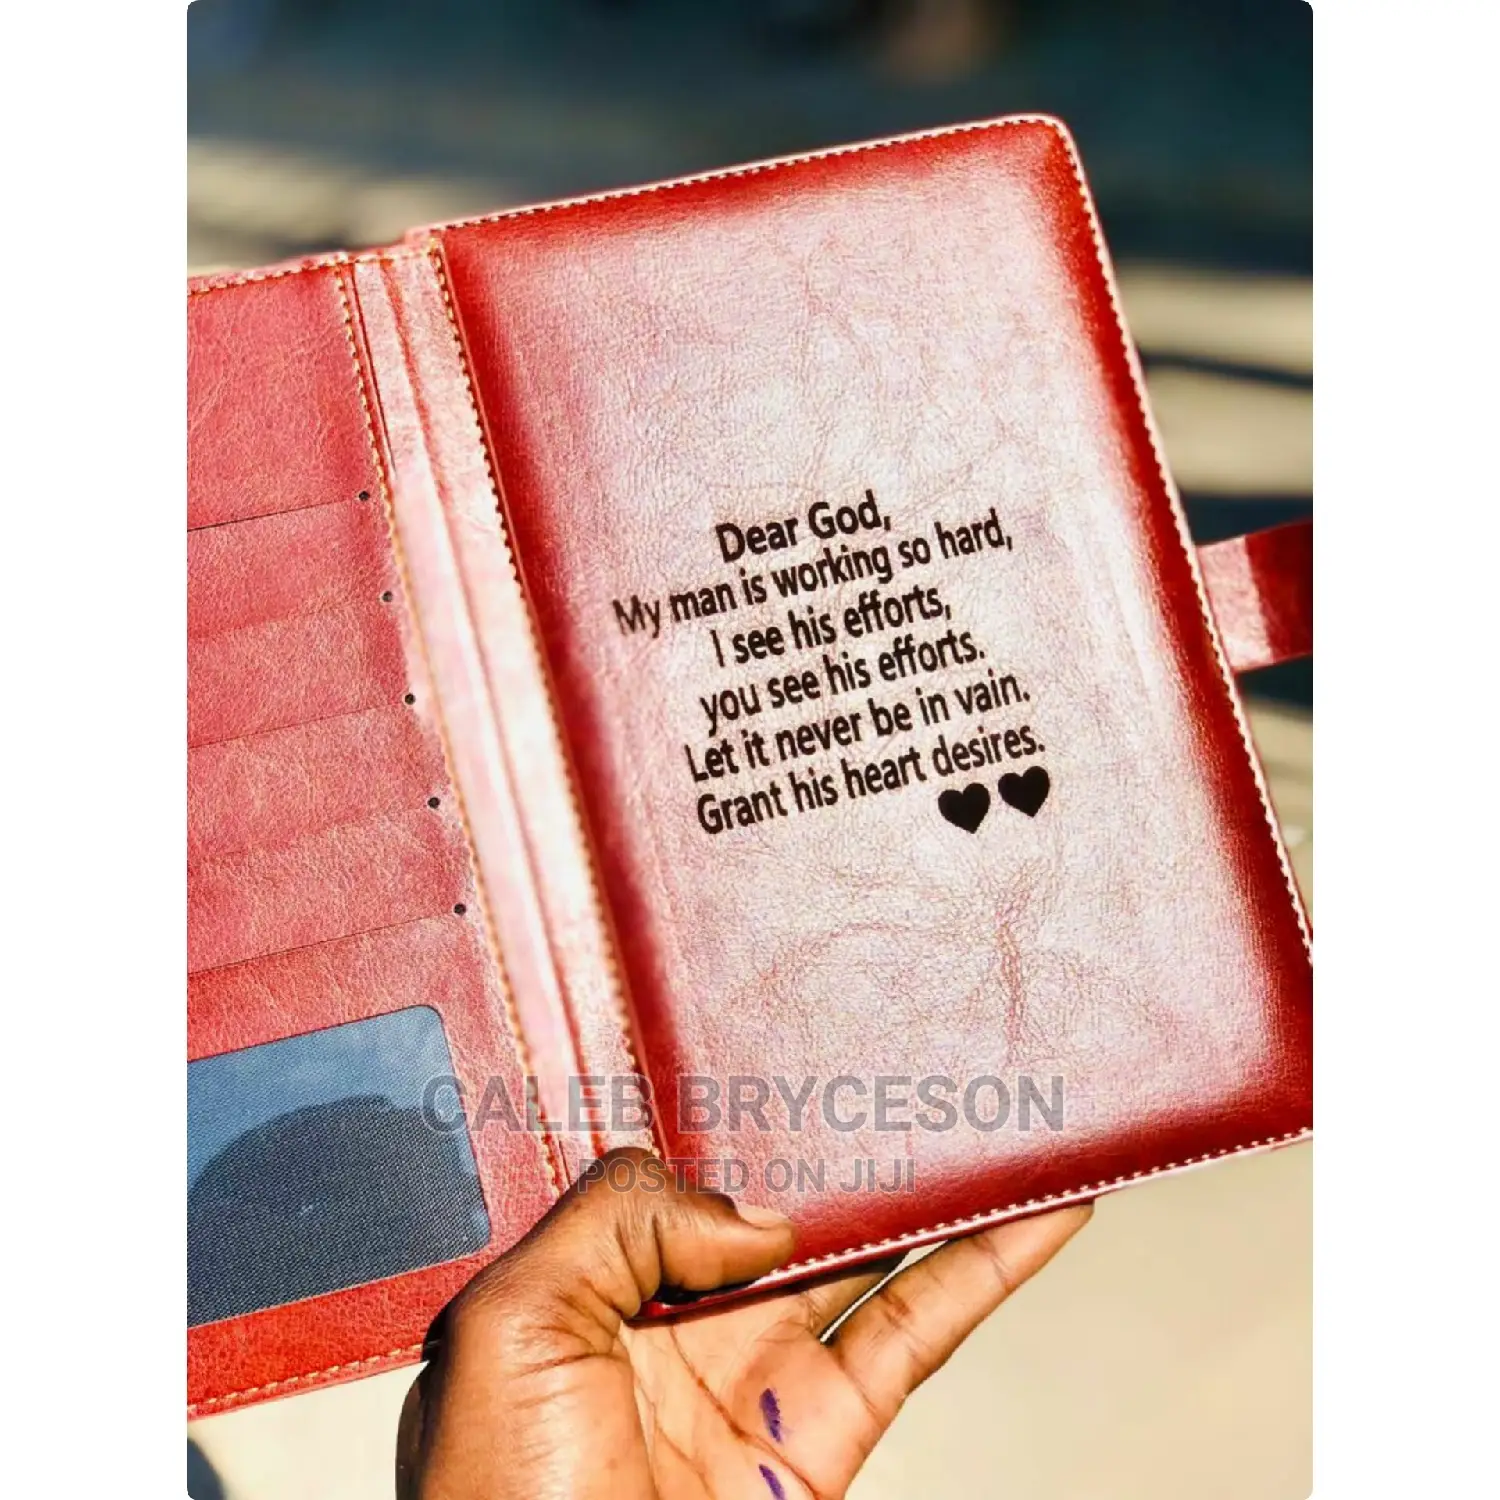 Dear God,
My man is working so hard,
I see his efforts,
you see his efforts.
Let it never be in vain.
Grant his heart desires.
CALEB BRYCESON
POSTED ON JIJI